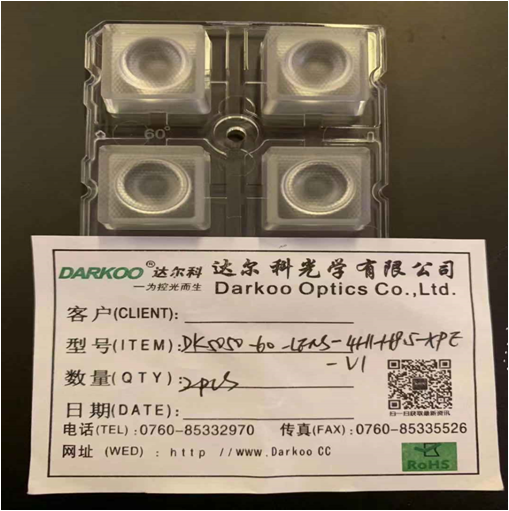 60°
DARKOO® 达尔科 达尔科光学有限公司
一为控光而生 Darkoo Optics Co.,Ltd.
客户(CLIENT):
型号(ITEM): DK5050-60-LENS-4H1-H9.5-XPE
-V1
数量(QTY): 2pcs
日期(DATE):
扫一扫获取最新资讯
电话(TEL): 0760-85332970 传真(FAX): 0760-85335526
网址 (WED) : http //www.Darkoo CC
RoHS